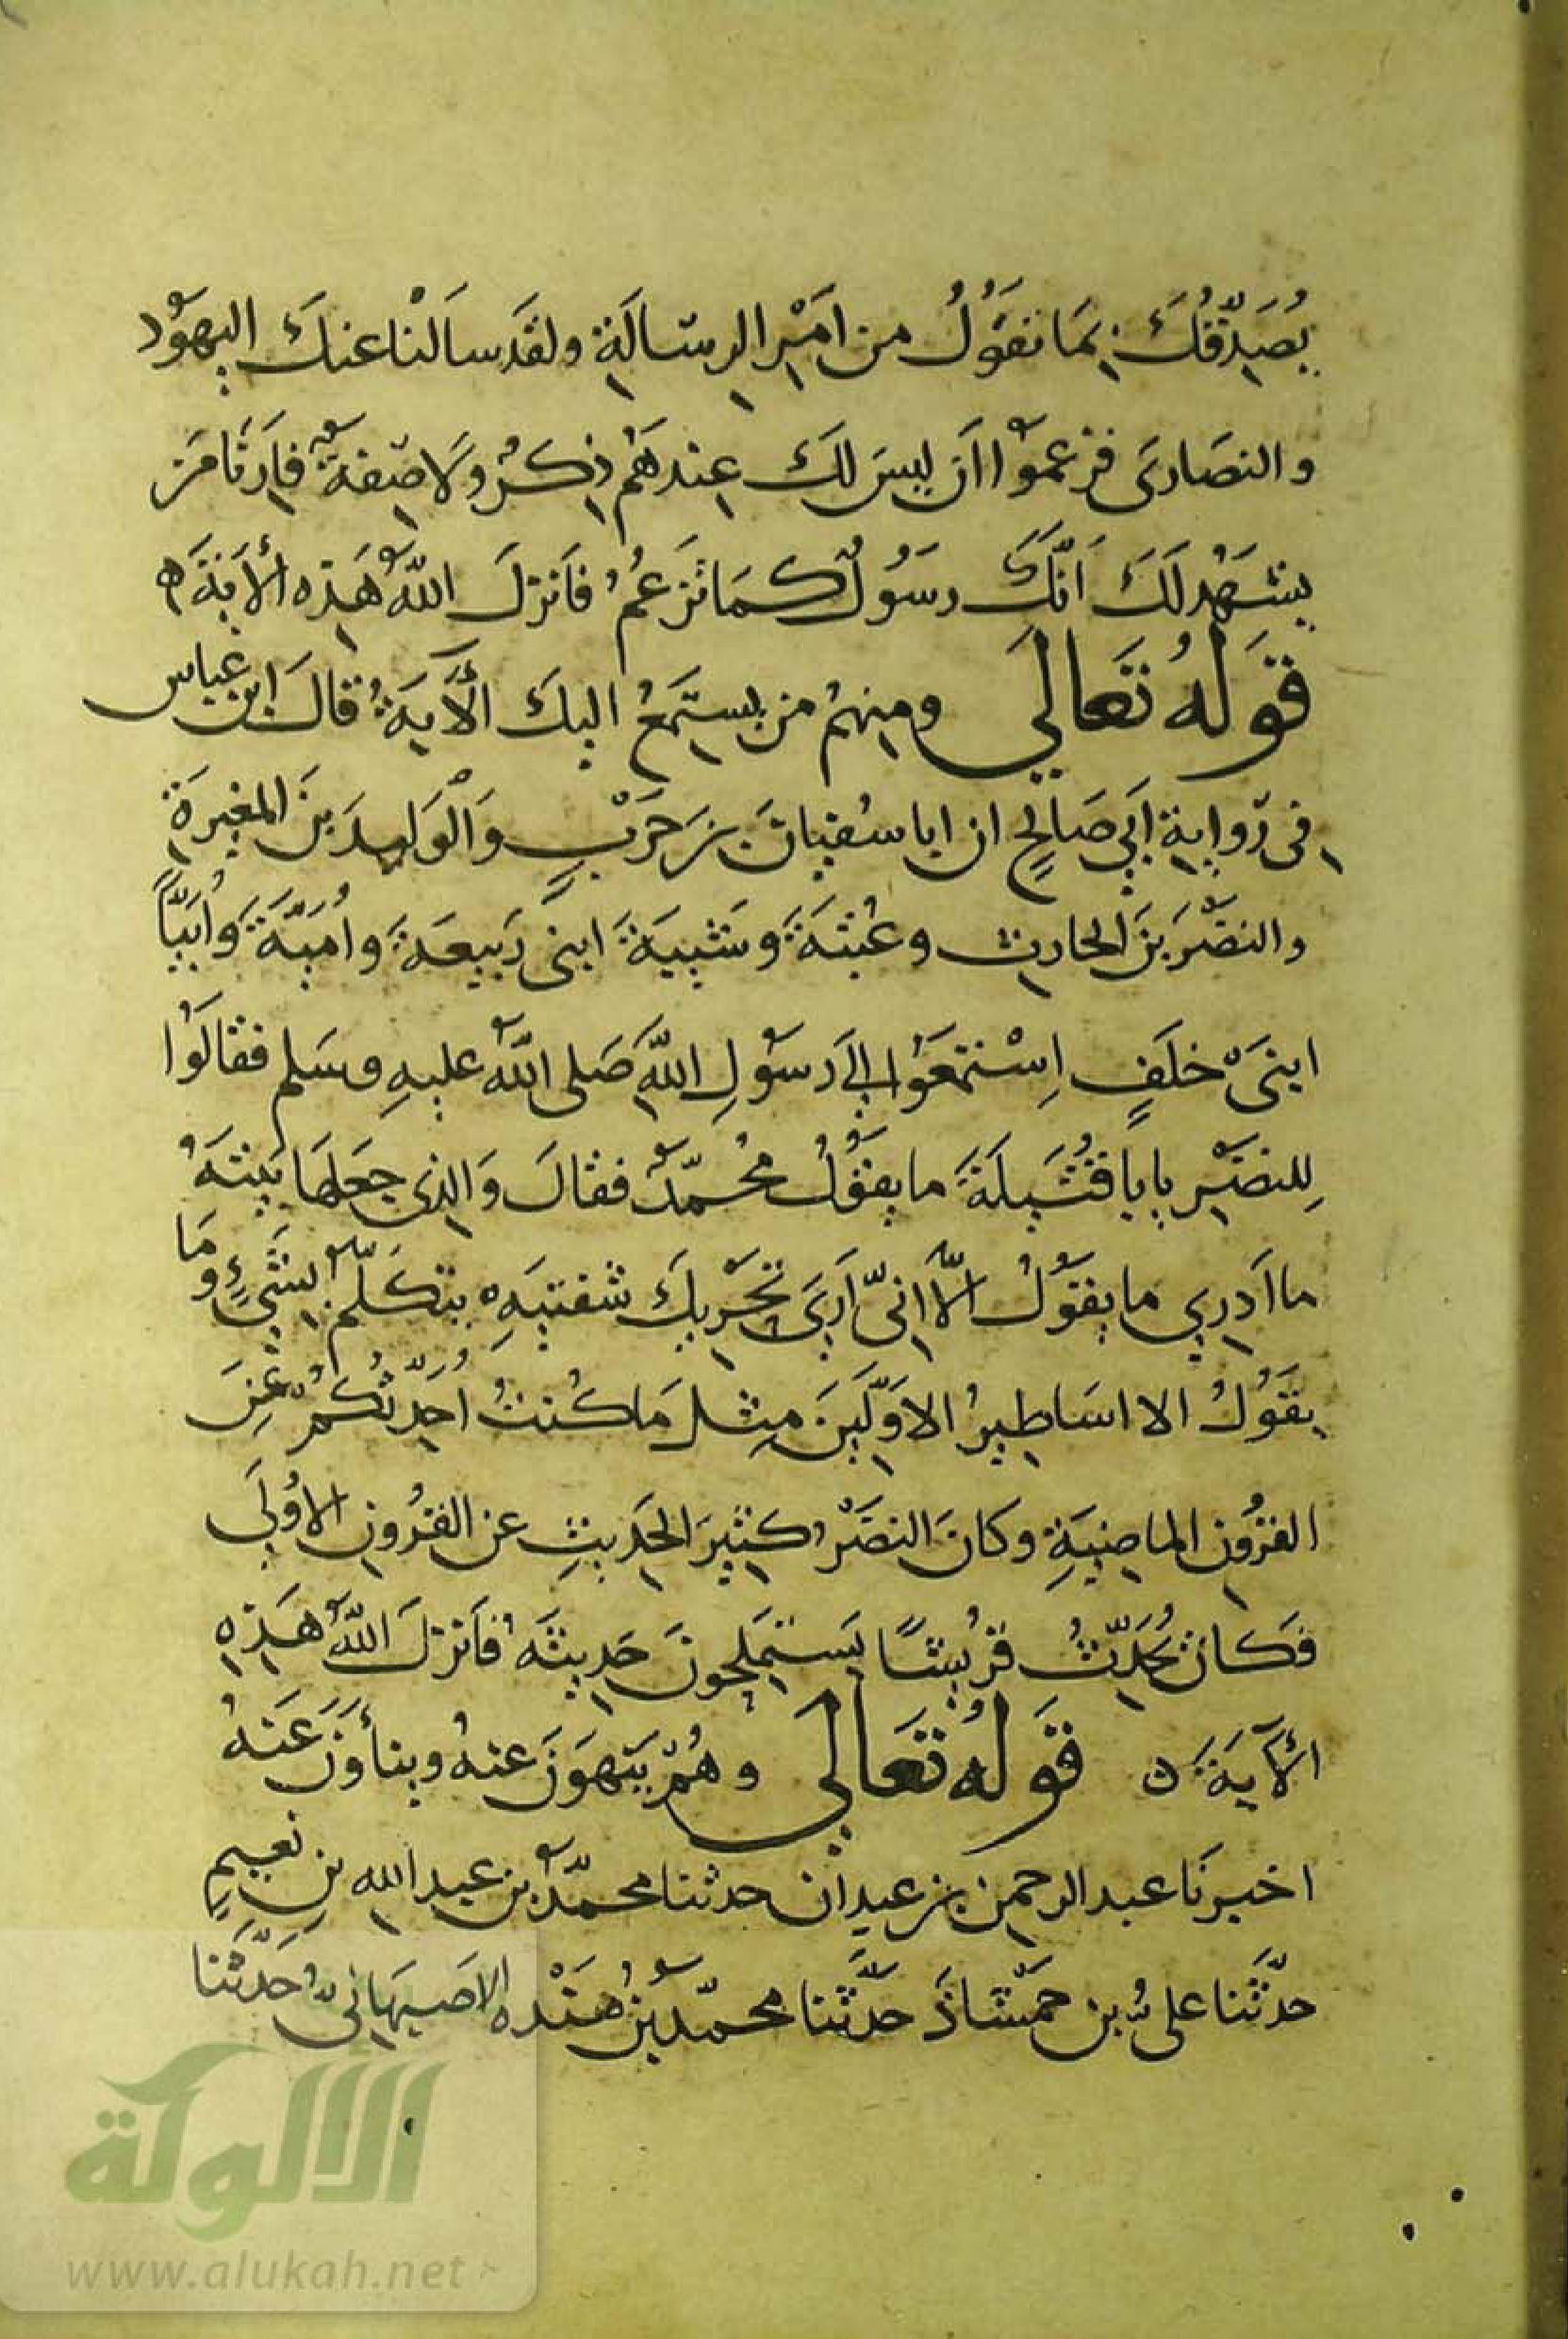 يُصَدِّقُكَ بِمَا تقَوُلُ من امَرِْ الرِسَالَةِ ولقَد سَالَنْا عنكَ اليهَوُد
والنصَارىَ فزعموُا اَن ليسَ لكَ عِندهَمُ ذِكرٌ ولَا صِفةٌ فاَرِنَا مَن
يشَهَدُ لَكَ اَنَّكَ رسَوُلٌ كمَا تَزعمُ فاَنزلَ اللّٰهُ هَذِه الأَيَةَ ه
قوَلهُ تعَالىَ ومِنهمُ من يستَمِعُ اليكَ الأَيَةُ قالَ ابن عباس
فى روَايةِ ابَىِ صَالحٍ ان ابا سفيانَ بنَ حَرْبٍ وَالْوَليدَ بنَ المغيرَةِ
والنضَّرَ بنَ الحارِثِ وعُتبَةَ وشَيبَةَ ابنى ربَيعَةَ وامُيَّةَ وَاُبَيًّا
ابنىَْ خلَفٍ اِسْتمَعَوُا الِىَ رسَوُلِ اللّٰهِ صَلى اللّٰهُ عليهِ وسَلم فقالَوُا
لِلنضَرِْ يا با قتُيَلَةَ ما يقوَُلُ محُمَّدٌ فقالَ وَالذِى جعَلهَا بَيتَهُ
ما اَدرِي ما يقوَُلُ اِلَّا انىِّ اَرَىَ تحَرِْيكَ شفتيَهِ يتكلَمَّ بِشَىْءٍ وَمَا
يقَوُلُ الا اسَاطِيرُ الاوَّلِينَ مِثلَ مَا كُنتُ اُحَدِّثكُمُْ عنِ
القرُونِ الماضِيَةِ وكانَ النضَرُْ كَثِيرَ الحَدِيثِ عن القرُونِ الاوُلىَ
فكانَ يحُدَِّثُ قرُيشًا يَستمَلِحونَ حَدِيثَهُ فاَنزلَ اللّٰهُ هَذِهِ
الأَيةَ ه قوَلهُ تعَالىَ وهُمْ يَنهوَنَ عنهُ وينأَوَنَ عَنهُ
اخبرنَا عبد الرحمنِ بن عبدان حدثنا محمدُّ بن عبدِ الله بنِ نعُيمٍ
حدَّثَنا علىُّ بن حمَشَّاذَ حدَّثَنا محمدّ بنُ مَنْدَه الاصَبهَانىِ حَدَّثَنا
الألوكة
www.alukah.net